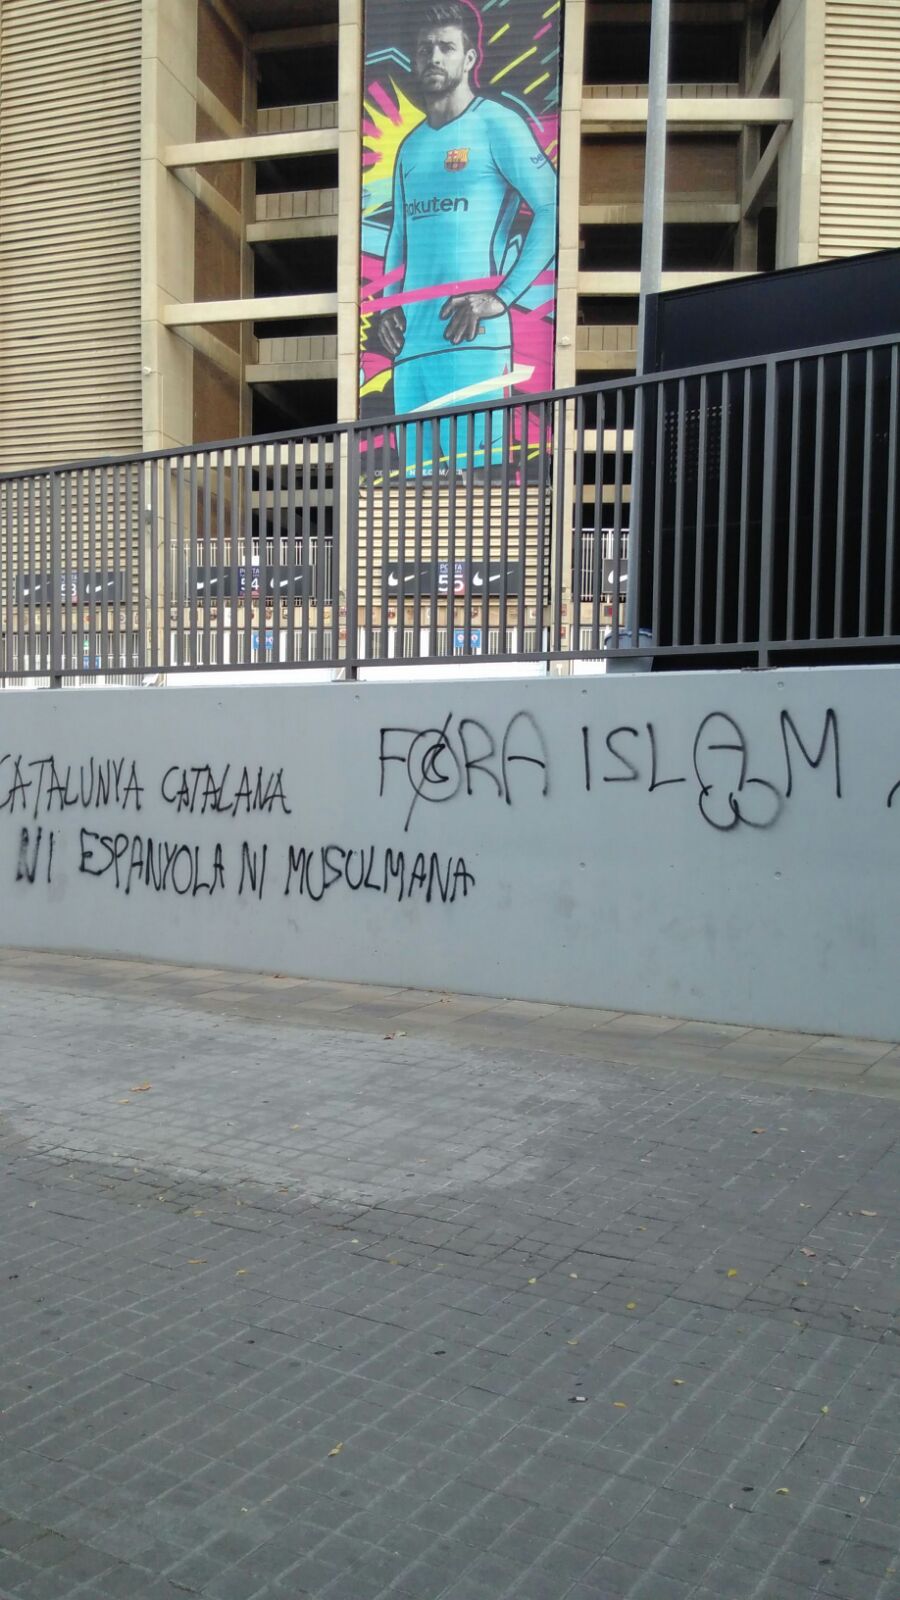 Rakuten
PORTA
54
PORTA
55
CATALUNYA CATALANA
NI ESPANYOLA NI MUSULMANA
FORA ISLAM